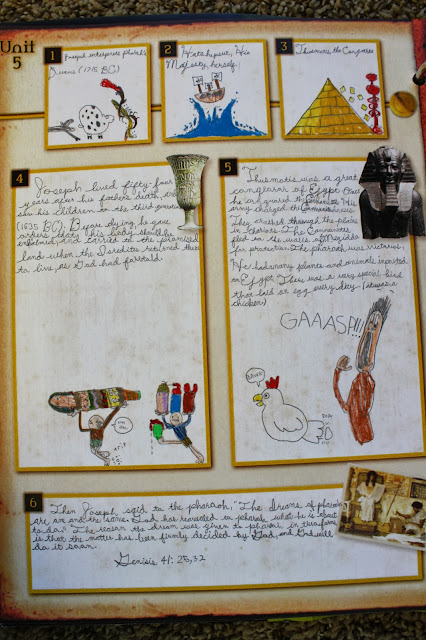 Unit
5
1
Joseph interprets pharoh's
Dreams (1715 BC)
2
Hatshepsut, His
Majesty, herself!
3
Thusmosis, the Conqueror
4
Joseph lived fifty-four
years after his fathers death, and
saw his children to the third generation
(1635 BC). Before dying he gave
orders that his body should be
embalmed, and carried to the promised
land when the Isrelites returned there
to live, as God had foretold.
5
Thusmotis was a great
conqueror of Egypt. Once
he conquered the Canaanites. His
army charged the Cannanites.
They crossed through the plains
in chariots. The Cannanites
fled in the walls of Megiddo
for protection. The pharaoh was victorius.
He had many plants and animals imported
to Egypt. There was a very special bird
that laid an egg every day. (it was a
chicken)
GAAASP!!!
6
Then Joseph said to the pharaoh, "The dreams of pharaoh
are one and the same. God has revealed to pharaoh what he is about
to do." The reason the dream was given to pharaoh in two forms
is that the matter has been firmly decided by God, and God will
do it soon.
Genisis 41: 25,32